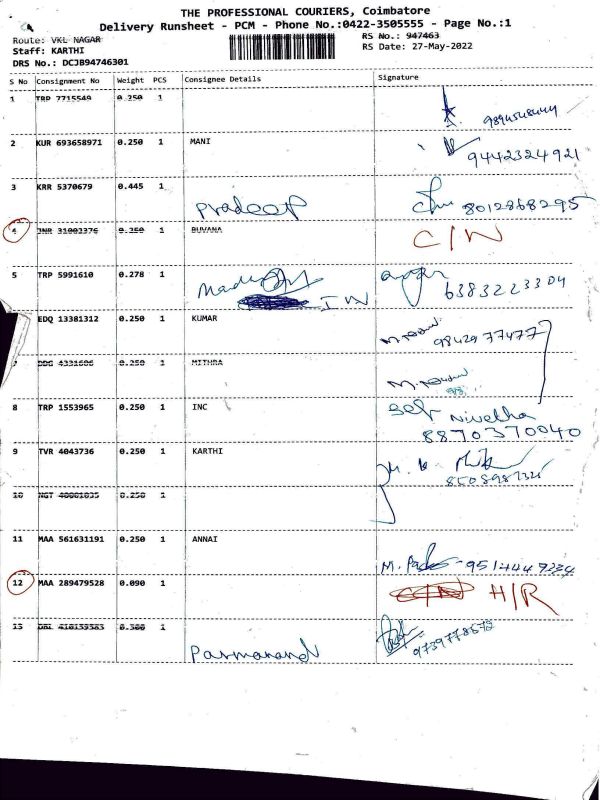 THE PROFESSIONAL COURIERS, Coimbatore
Delivery Runsheet - PCM - Phone No.:0422-3505555 - Page No.:1
Route: VKL NAGAR
RS No.: 947463
Staff: KARTHI
RS Date: 27-May-2022
DRS No.: DCJB94746301
S No Consignment No Weight PCS Consignee Details Signature
1 TRP 7715549 0.250 1
9894548444
2 KUR 693658971 0.250 1 MANI
9442324921
3 KRR 5370679 0.445 1
Pradeep 8012868295
4 JNR 31002376 0.250 1 BUVANA
C/N
5 TRP 5991610 0.278 1
IN 6383223304
EDQ 13381312 0.250 1 KUMAR
9842977477
DDG 4331686 0.250 1 MITHRA
8 TRP 1553965 0.250 1 INC
self Nivetha
8870370040
9 TVR 4043736 0.250 1 KARTHI
10 NGT 40001035 0.250 1
11 MAA 561631191 0.250 1 ANNAI
9514449234
12 MAA 289479528 0.090 1
H/R
13 0.300 1
Parmanand 9739778678